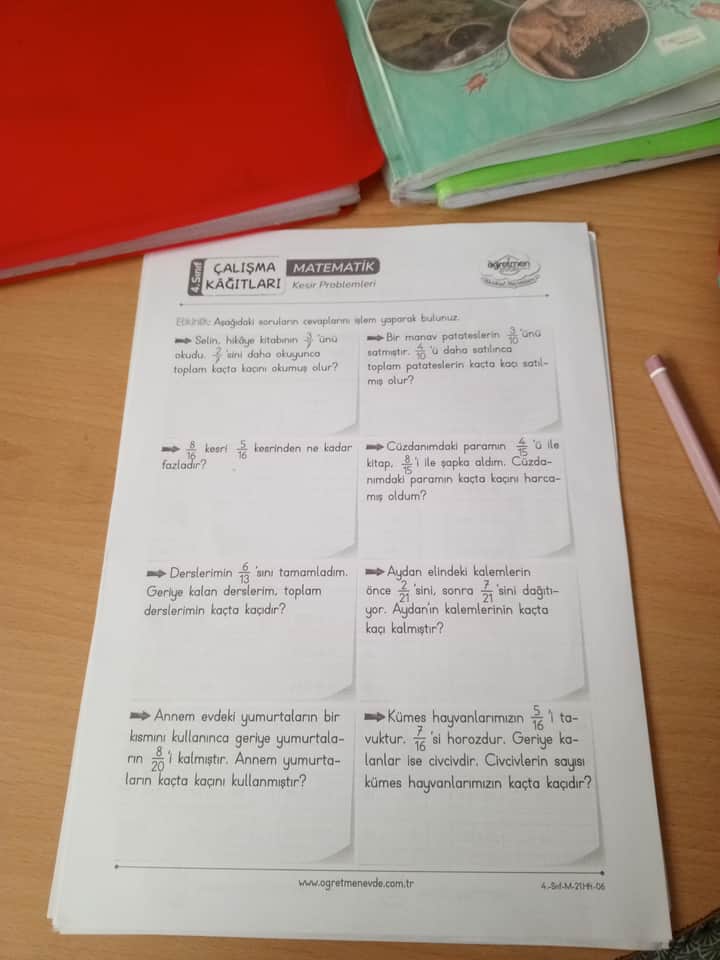 4. Sınıf
ÇALIŞMA
KÂĞITLARI
MATEMATİK
Kesir Problemleri
öğretmen
Etkinlik: Aşağıdaki soruların cevaplarını işlem yaparak bulunuz.
Selin, hikâye kitabının 3/7 'ünü
okudu. 2/7 'sini daha okuyunca
toplam kaçta kaçını okumuş olur?
Bir manav patateslerin 3/10 'ünü
satmıştır. 4/10 'ü daha satılınca
toplam patateslerin kaçta kaçı satıl-
mış olur?
8/16 kesri 5/16 kesrinden ne kadar
fazladır?
Cüzdanımdaki paramın 4/15 'ü ile
kitap, 8/15 'i ile şapka aldım. Cüzda-
nımdaki paramın kaçta kaçını harca-
mış oldum?
Derslerimin 6/13 'sını tamamladım.
Geriye kalan derslerim, toplam
derslerimin kaçta kaçıdır?
Aydan elindeki kalemlerin
önce 2/21 'sini, sonra 7/21 'sini dağıtı-
yor. Aydan'ın kalemlerinin kaçta
kaçı kalmıştır?
Annem evdeki yumurtaların bir
kısmını kullanınca geriye yumurtala-
rın 8/20 'i kalmıştır. Annem yumurta-
ların kaçta kaçını kullanmıştır?
Kümes hayvanlarımızın 5/16 'i ta-
vuktur. 7/16 'si horozdur. Geriye ka-
lanlar ise civcivdir. Civcivlerin sayısı
kümes hayvanlarımızın kaçta kaçıdır?
www.ogretmenevde.com.tr
4.-Sınıf-M-21.Hft-06